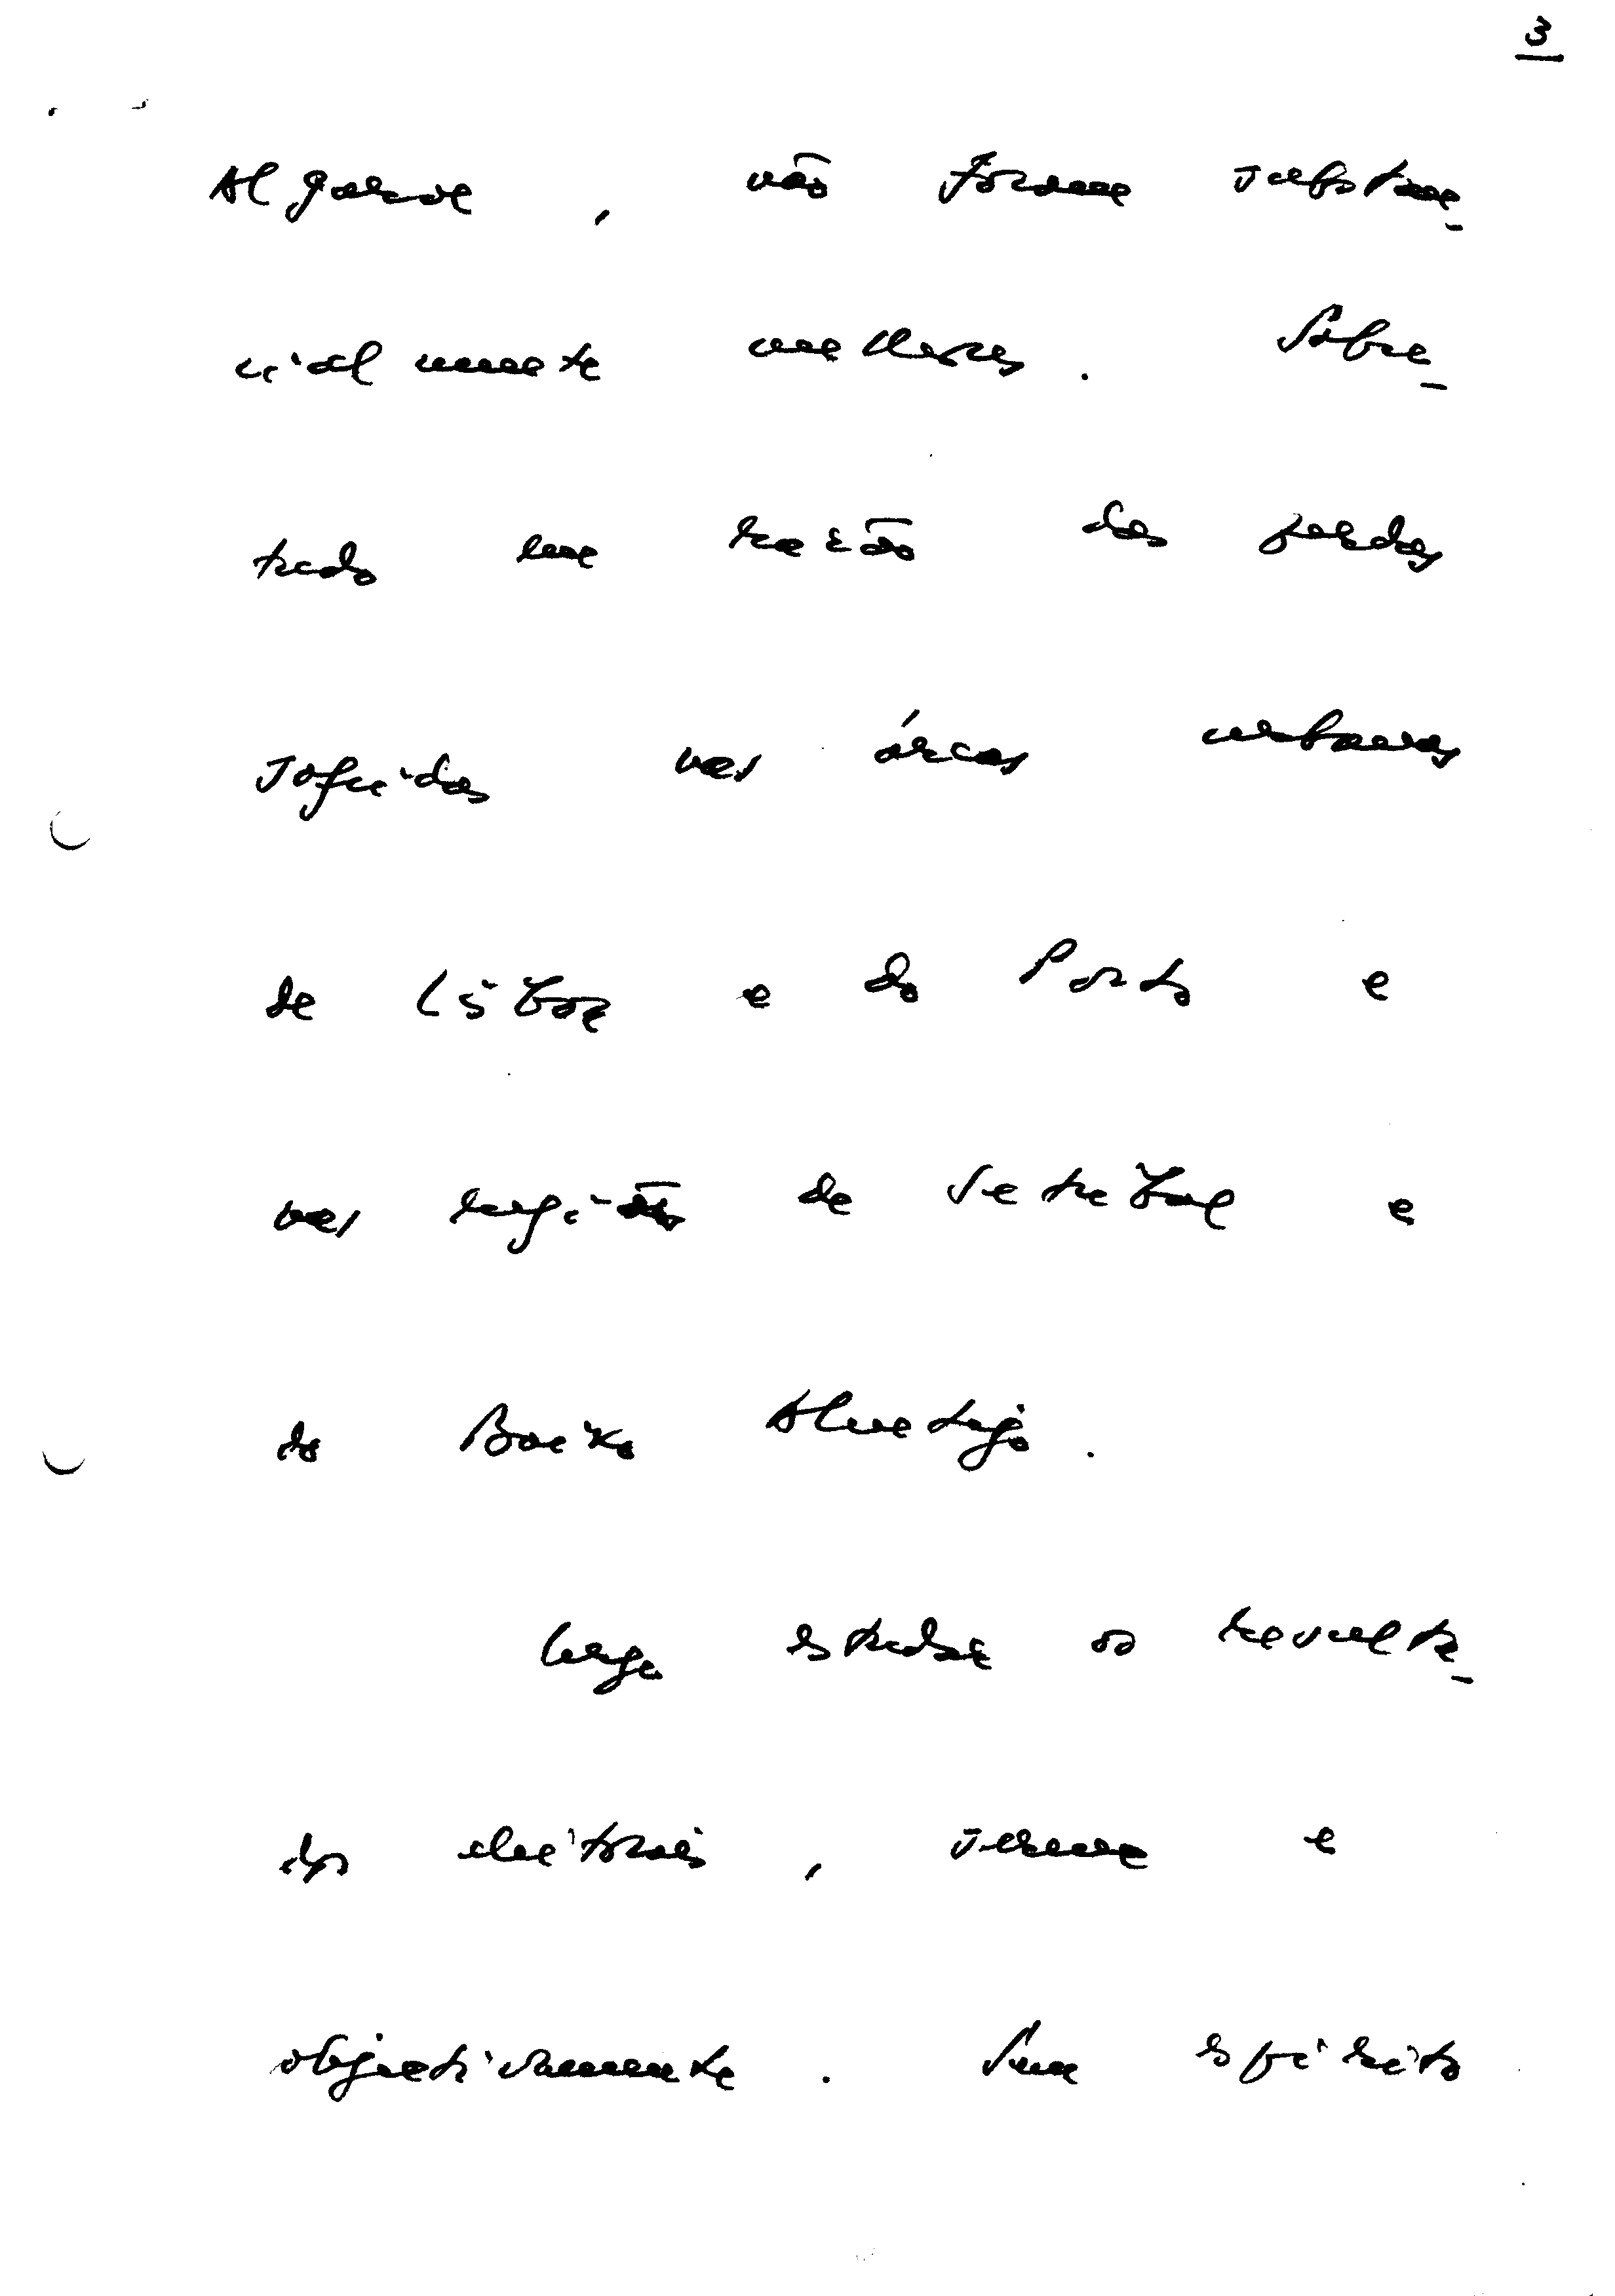 3
Algarve, não foram substan-
cialmente melhores. Sobre-
tudo em razão das perdas
sofridas nas áreas urbanas
de Lisboa e do Porto e
nas regiões de Setúbal e
do Baixo Alentejo.
Urge estudar os resulta-
dos eleitorais, serena e
objectivamente. Sem espírito